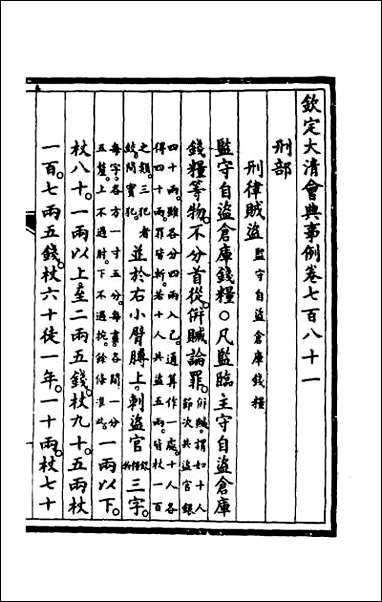 欽定大清會典事例卷七百八十一
刑部
刑律賊盜 監守自盜倉庫錢糧
監守自盜倉庫錢糧○凡監臨主守自盜倉庫
錢糧等物。不分首從。併贓論罪。併贓。謂如十人節次共盜官銀
四十兩。雖各分四兩入己。通算作一處。十人各
得四十兩。罪皆斬。若十人共盜五兩。皆杖一百
之類。三犯者絞。問實犯。並於右小臂膊上。刺盜官銀糧物三字。
每字。各方一寸五分。每畫。各闊一分五釐。上不過肘。下不過腕。餘條準此。一兩以下。
杖八十。一兩以上至二兩五錢。杖九十。五兩杖
一百。七兩五錢。杖六十徒一年。一十兩。杖七十